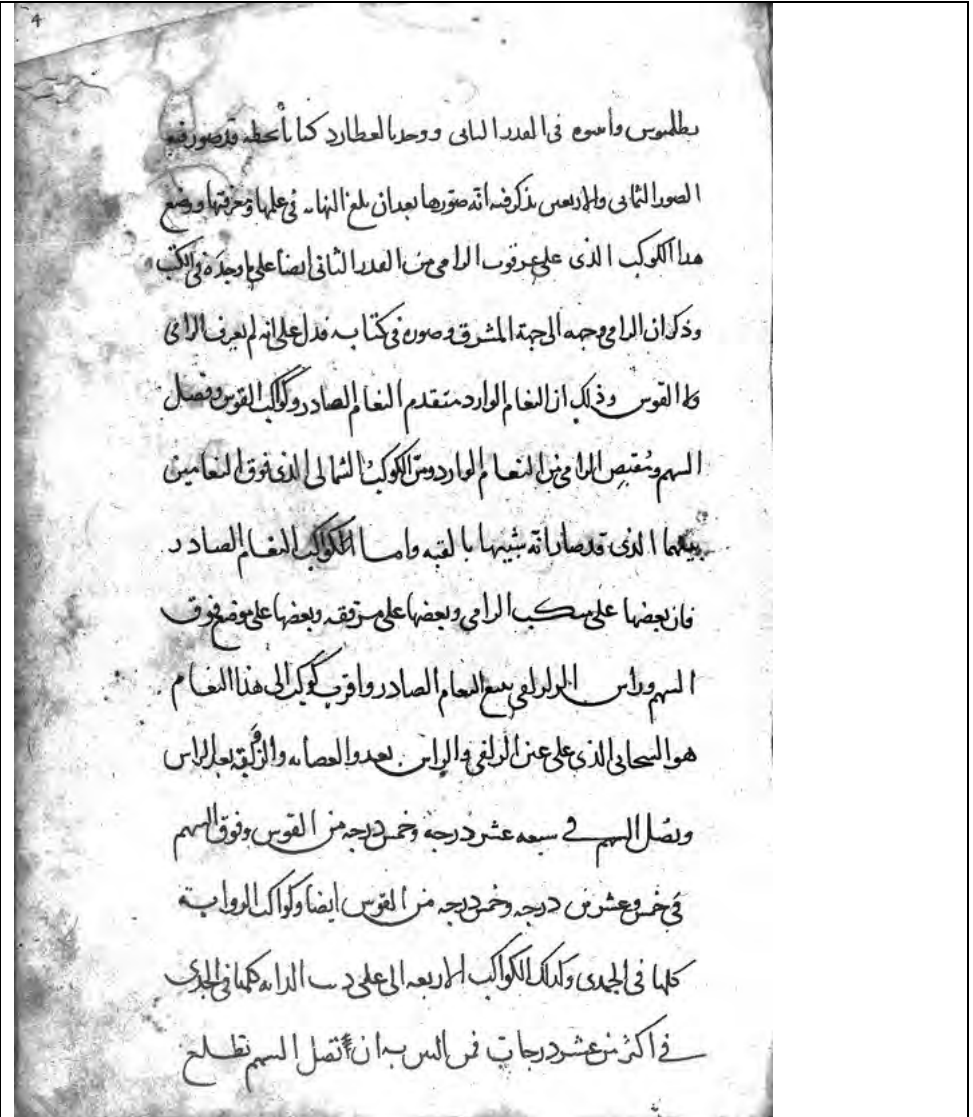 4
بطلميوس واسوه فى القدر الثانى ووجدنا لعطارد كتابا بخطه قد صور فيه
الصور الثمانى والاربعين يذكر فيه انه صورها بعد ان بلغ النهايه فى علمها ومعرفتها ووضع
هذا الكوكب الذى على عرقوب الرامى من القدر الثانى ايضا على ما وجده فى الكتب
وذكر ان الرامى وجهه الى جهة المشرق وصوره فى كتابه فدل على انه لم يعرف الرامى
ولا القوس وذلك ان النعام الوارد متقدم النعام الصادر وكواكب القوس ونصل
السهم ومقبض الرامى من النعام الوارد ومن الكوكب الشمالى الذى فوق النعامين
بينهما الذى قد صارا به شبيها بالقبه واما الكواكب النعام الصادر
فان بعضها على منكب الرامى وبعضها على مرفقه وبعضها على موضع فوق
السهم وراس الرامى يتبع النعام الصادر واقرب كوكب الى هذا النعام
هو السحابى الذى على عين الرامى والراس بعده والعصابه والذؤابة بعد الراس
ونصل السهم فى سبعه عشر درجة وخمس درجه من القوس وفوق السهم
فى خمس وعشرين درجه وخمس درجه من القوس ايضا وكواكب الذوابه
كلها فى الجدى وكذلك الكواكب الاربعه التى على ذنب الدابه كلها فى الجدى
فى اكثر من عشر درجات فمن البين به ان نصل السهم تطلع